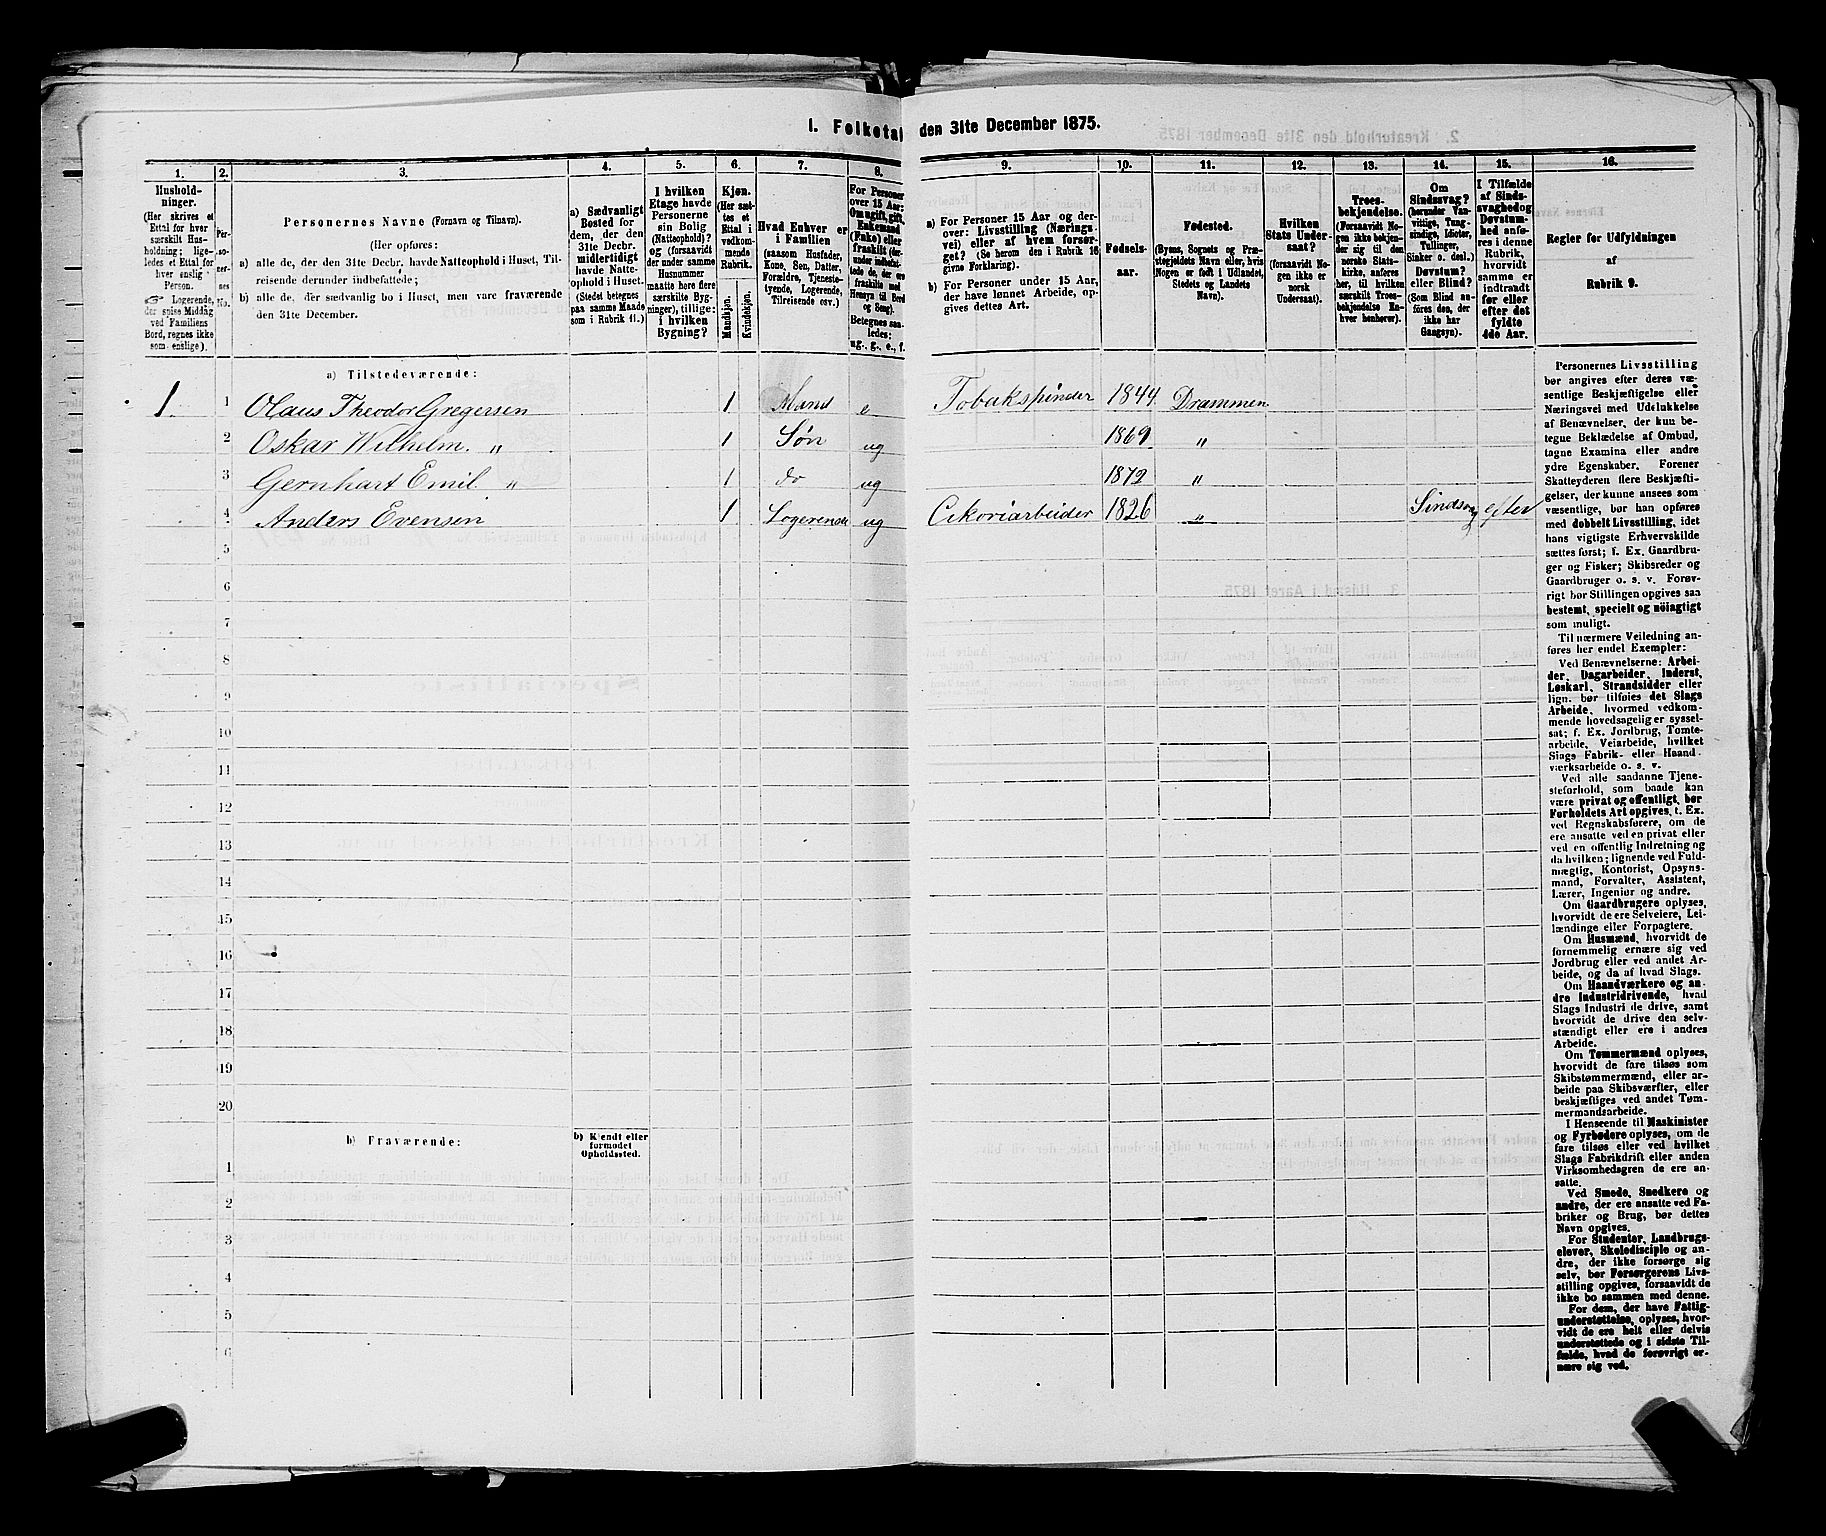 I. Folketal den 31te December 1875.
1. 2. 3. 4. 5. 6. 7. 8. 9. 10. 11. 12. 13. 14. 15. 16.
Hushold-
ninger.
(Her skrives et
Ettal for hver
særskilt Hus-
holdning; lige-
ledes et Ettal for
hver enslig
Person.
Logerende,
der spise Middag
ved Familiens
Bord, regnes ikke
som enslige).
Per-
so-
ner-
nes
No.
Personernes Navne (Fornavn og Tilnavn).
(Her opføres:
a) alle de, der den 31te Decbr. havde Natteophold i Huset, Til-
reisende derunder indbefattede;
b) alle de, der sædvanlig bo i Huset, men vare fraværende
den 31te December.
a) Sædvanligt
Bosted for
dem, der den
31te Decbr.
midlertidigt
havde Natte-
ophold i Huset.
(Stedet betegnes
paa samme Maade
som i Rubrik 11.)
I hvilken
Etage havde
Personerne
sin Bolig
(Natteophold)?
og (forsaavidt
der under samme
Husnummer
maatte høre flere
særskilte Byg-
ninger), tillige:
i hvilken
Bygning?
Kjøn.
(Her sæt-
tes et
Ettal i
vedkom-
mende
Rubrik.
Mandkjøn.
Kvindekjøn.
Hvad Enhver er
i Familien
(saasom Husfader,
Kone, Søn, Datter,
Forældre, Tjeneste-
tyende, Logerende,
Tilreisende osv.)
For Personer
over 15 Aar:
Om ugift, gift,
Enkemand
(Enke) eller
fraskilt (der-
under indbefat-
tede de, der ere
fraskilte med
Hensyn til Bord
og Seng).
Betegnes saa-
ledes:
ug., g., e., f.
a) For Personer 15 Aar og der-
over: Livsstilling (Nærings-
vei) eller af hvem forsør-
get? (Se herom den i Rubrik 16
givne Forklaring).
b) For Personer under 15 Aar,
der have lønnet Arbeide, op-
gives dettes Art.
Fødsels-
aar.
Fødested.
(Byens, Sognets og Præ-
stegjeldets Navn eller, hvis
Nogen er født i Udlandet,
Stedets og Landets
Navn).
Hvilken
Stats Under-
saat?
(forsaavidt No-
gen ikke er
norsk
Undersaat).
Troes-
bekjendelse.
(Forsaavidt No-
gen ikke bekjen-
der sig til den
norske Stats-
kirke, anføres
her, til hvilken
særskilt Troes-
bekjendelse En-
hver henhører).
Om
Sindssvag?
(herunder Van-
vittige, Tung-
sindige, Idioter,
Tullinger,
Sinker o. desl.)
Døvstum?
eller Blind?
(Som Blind an-
føres den, der
ikke har
Gangsyn).
I Tilfælde
af Sinds-
svaghed og
Døvstum-
hed anfø-
res i denne
Rubrik,
hvorvidt
samme er
indtraadt
før eller
efter det
fyldte
4de Aar.
Regler for Udfyldningen
af
Rubrik 9.
a) Tilstedeværende:
1 1 Olaus Theodor Gregersen 1 Mand e Tobakspinder 1844 Drammen
2 Oskar Wilhelm. " 1 Søn ug 1869 "
3 Gernhart Emil " 1 do ug 1872 "
4 Anders Evensen 1 Logerende ug Cikoriarbeider 1826 " Sindssvag efter
5
6
7
8
9
10
11
12
13
14
15
16
17
18
19
20
b) Fraværende:
b) Kjendt eller
formodet
Opholdssted.
1
2
3
4
5
6
Personernes Livsstilling
bør angives efter deres væ-
sentlige Beskjæftigelse eller
Næringsvei med Udelukkelse
af Benævnelser, der kun be-
tegne Beklædelse af Ombud,
tagne Examina eller andre
ydre Egenskaber. Forener
Skatteyderen flere Beskjæfti-
gelser, der kunne ansees som
væsentlige, bør han opføres
med dobbelt Livsstilling, idet
hans vigtigste Erhvervskilde
sættes først; f. Ex. Gaardbru-
ger og Fisker; Skibsreder og
Gaardbruger o. s. v. Forøv-
rigt bør Stillingen opgives saa
bestemt, specielt og nöiagtigt
som muligt.
Til nærmere Veiledning an-
føres her endel Exempler:
Ved Benævnelserne: Arbei-
der, Dagarbeider, Inderst,
Løskarl, Strandsidder eller
lign. bør tilføies det Slags
Arbeide, hvormed vedkom-
mende hovedsagelig er syssel-
sat; f. Ex. Jordbrug, Tomte-
arbeide, Veiarbeide, hvilket
Slags Fabrik- eller Haand-
værksarbeide o. s. v.
Ved alle saadanne Tjene-
steforhold, som baade kan
være privat og offentligt, bør
Forholdets Art opgives, t. Ex.
ved Regnskabsførere, om de
ere ansatte ved en privat eller
ved en offentlig Indretning og
da hvilken; lignende ved Fuld-
mægtig, Kontorist, Opsyns-
mand, Forvalter, Assistent,
Lærer, Ingeniør og andre.
Om Gaardbrugere oplyses,
hvorvidt de ere Selveiere, Lei-
lændinge eller Forpagtere.
Om Husmænd, hvorvidt de
fornemmelig ernære sig ved
Jordbrug eller ved andet Ar-
beide, og da af hvad Slags.
Om Haandværkere og an-
dre Industridrivende, hvad
Slags Industri de drive, samt
hvorvidt de drive den selv-
stændigt eller ere i andres
Arbeide.
Om Tømmermænd oplyses,
hvorvidt de fare tilsøs som
Skibstømmermænd, eller ar-
beide paa Skibsværfter, eller
beskjæftiges ved andet Tøm-
mermandsarbeide.
I Henseende til Maskinister
og Fyrbødere oplyses, om de
fare tilsøs eller ved hvilket
Slags Fabrikdrift eller anden
Virksomhedsgren de ere an-
satte.
Ved Smede, Snedkere og
andre, der ere ansatte ved Fa-
briker og Brug, bør dettes
Navn opgives.
For Studenter, Landbrugs-
elever, Skoledisciple og an-
dre, der ikke forsørge sig
selv, bør Forsørgerens Livs-
stilling opgives, forsaavidt de
ikke bo sammen med denne.
For dem, der have Fattig-
understøttelse, oplyses, hvor-
vidt de ere helt eller delvis
understøttede og i sidste Til-
fælde, hvad de forøvrigt er-
nære sig ved.